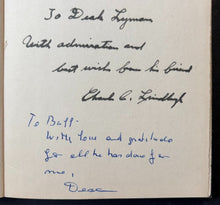 To Deak Lyman
With admiration and
best wishes from his friend
Charles A. Lindbergh
To Buff-
With love and gratitude
for all he has done for
me,
Deac